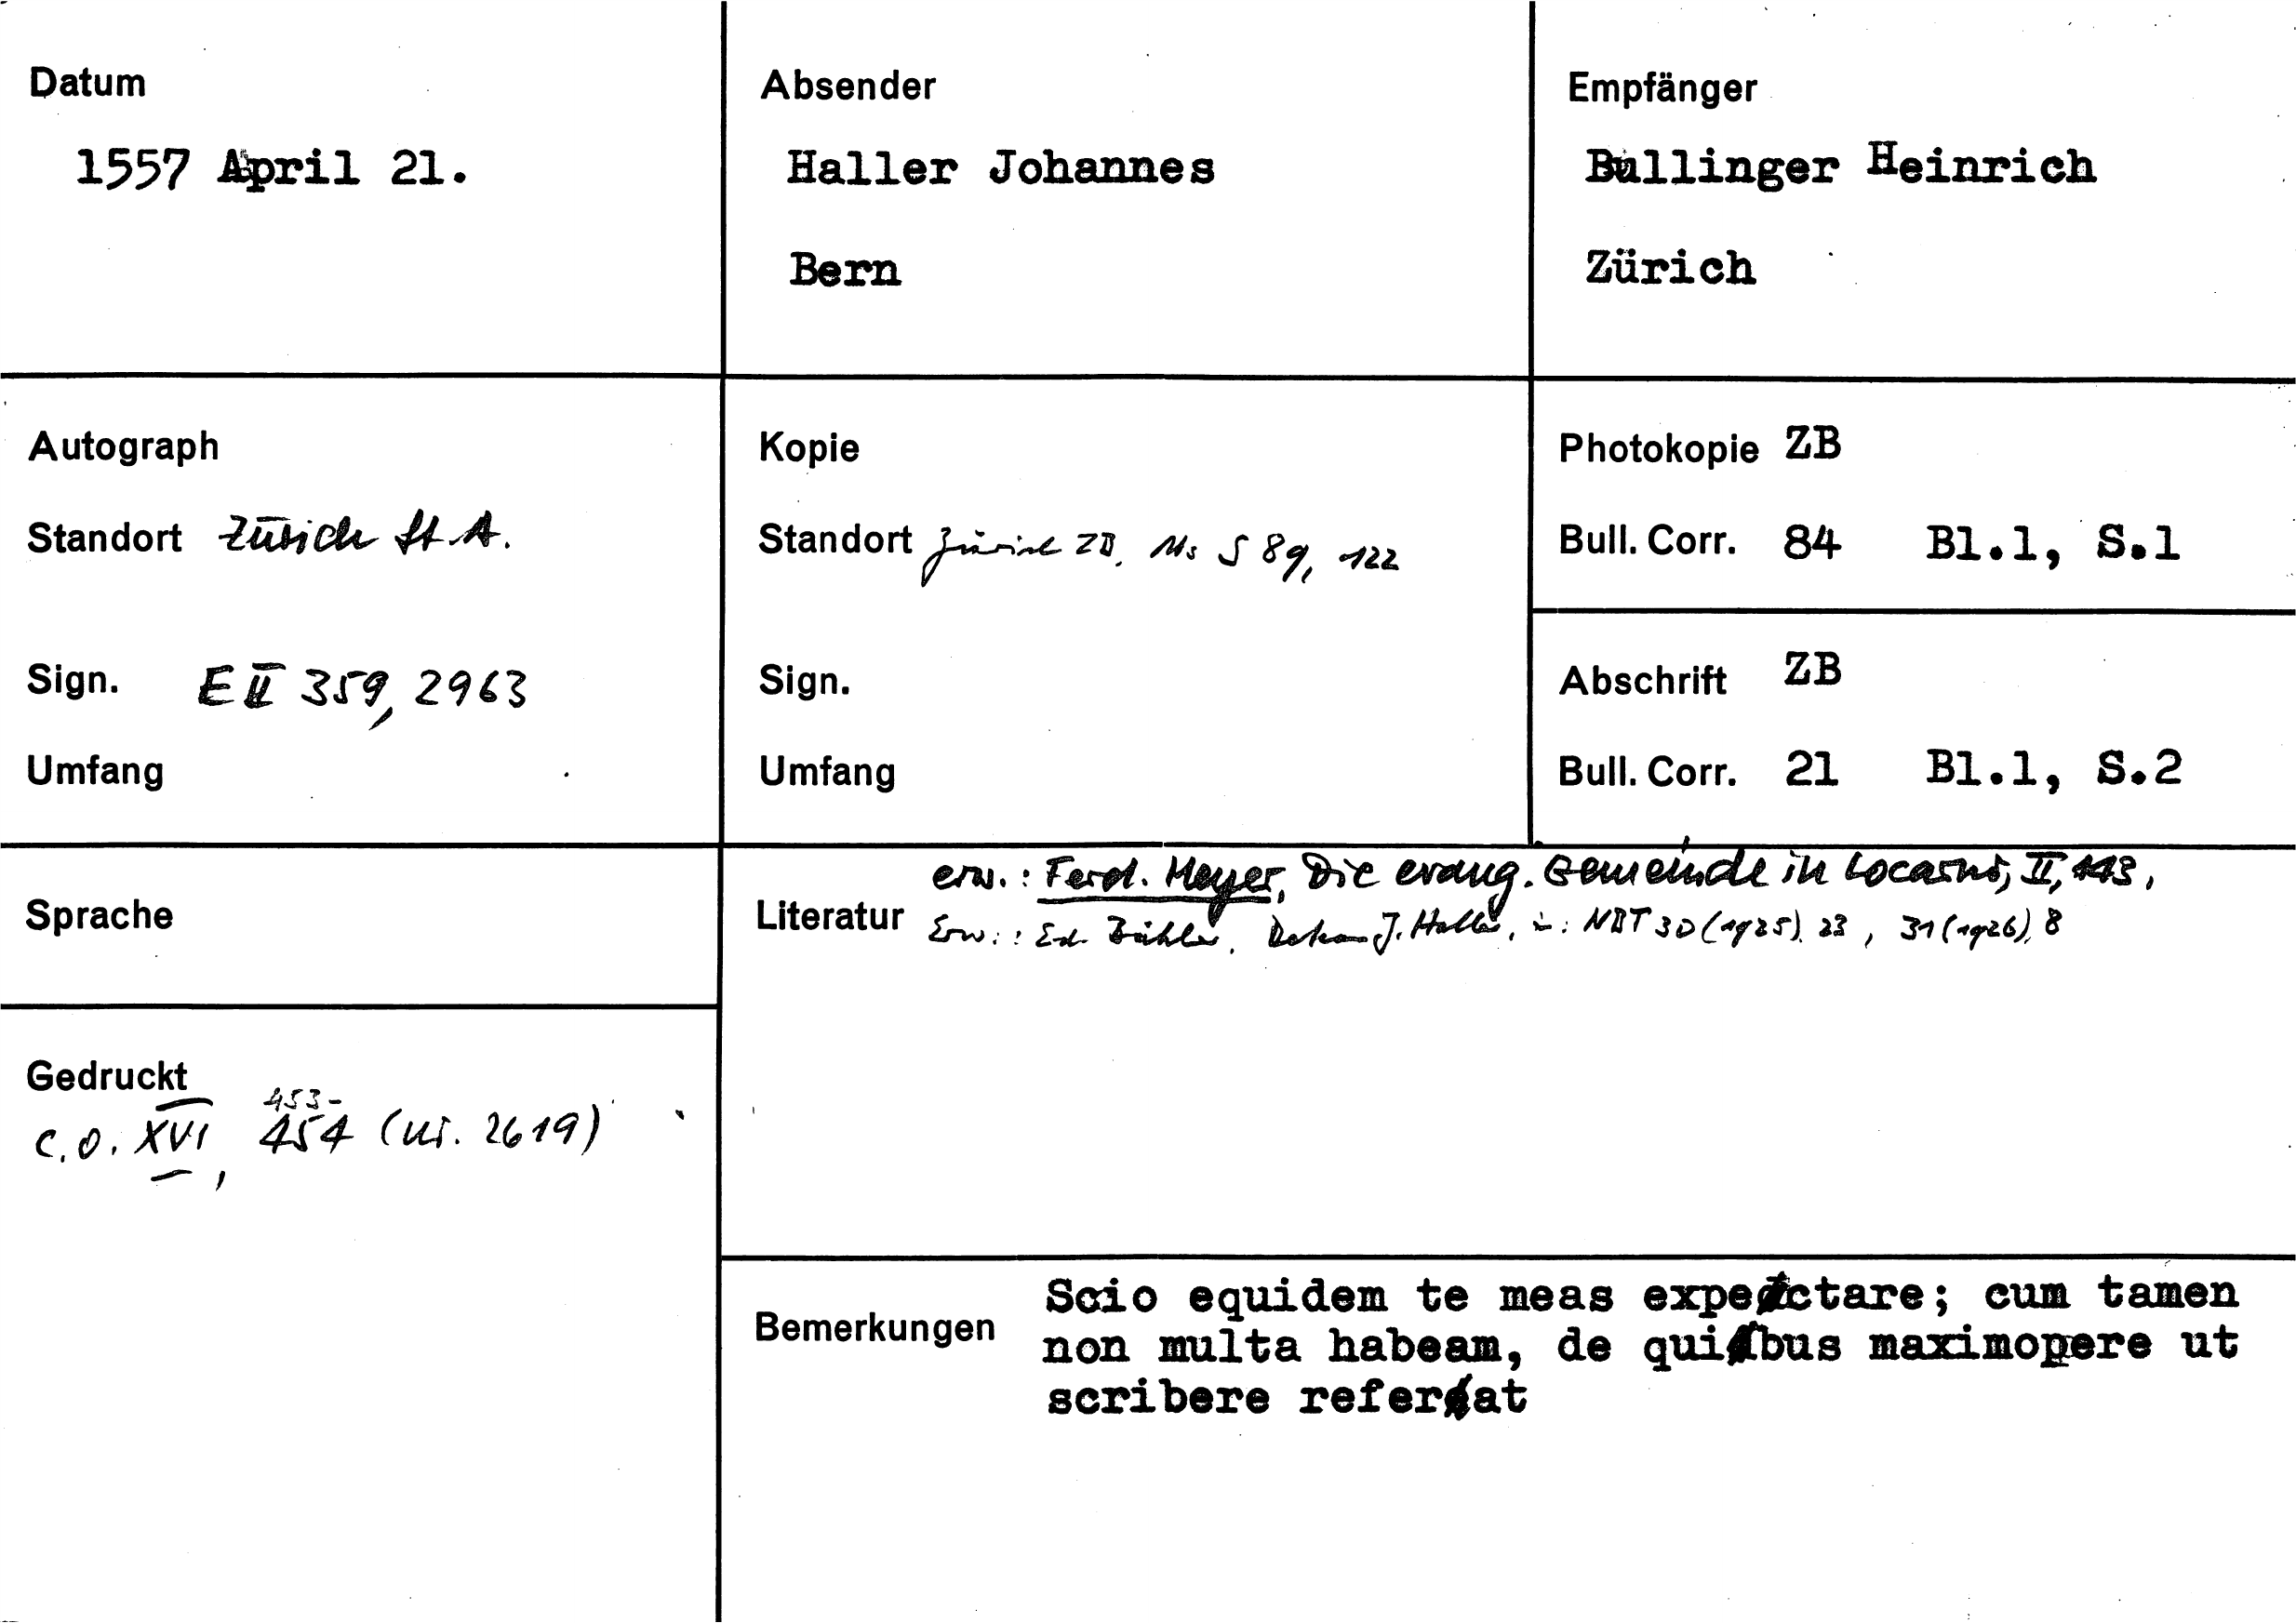 Datum
1557 April 21.
Absender
Haller Johannes
Bern
Empfänger
Bullinger Heinrich
Zürich
Autograph
Standort Zürich St.A.
Sign. E II 359, 2963
Umfang
Kopie
Standort Zürich ZB, Ms S 89, 122
Sign.
Umfang
Photokopie ZB
Bull. Corr. 84 Bl.1, S.1
Abschrift ZB
Bull. Corr. 21 Bl.1, S.2
Sprache
Gedruckt
453-
C.O. XVI, 454 (Nr. 2619)
erw.: Ferd. Meyer, Die evang. Gemeinde in Locarno, II, 113,
Literatur Erw.: Ed. Bähler, Dekan J. Haller, in: NBT 30 (1925), 23, 31 (1926), 8
Bemerkungen
Scio equidem te meas expectare; cum tamen
non multa habeam, de quibus maximopere ut
scribere referat